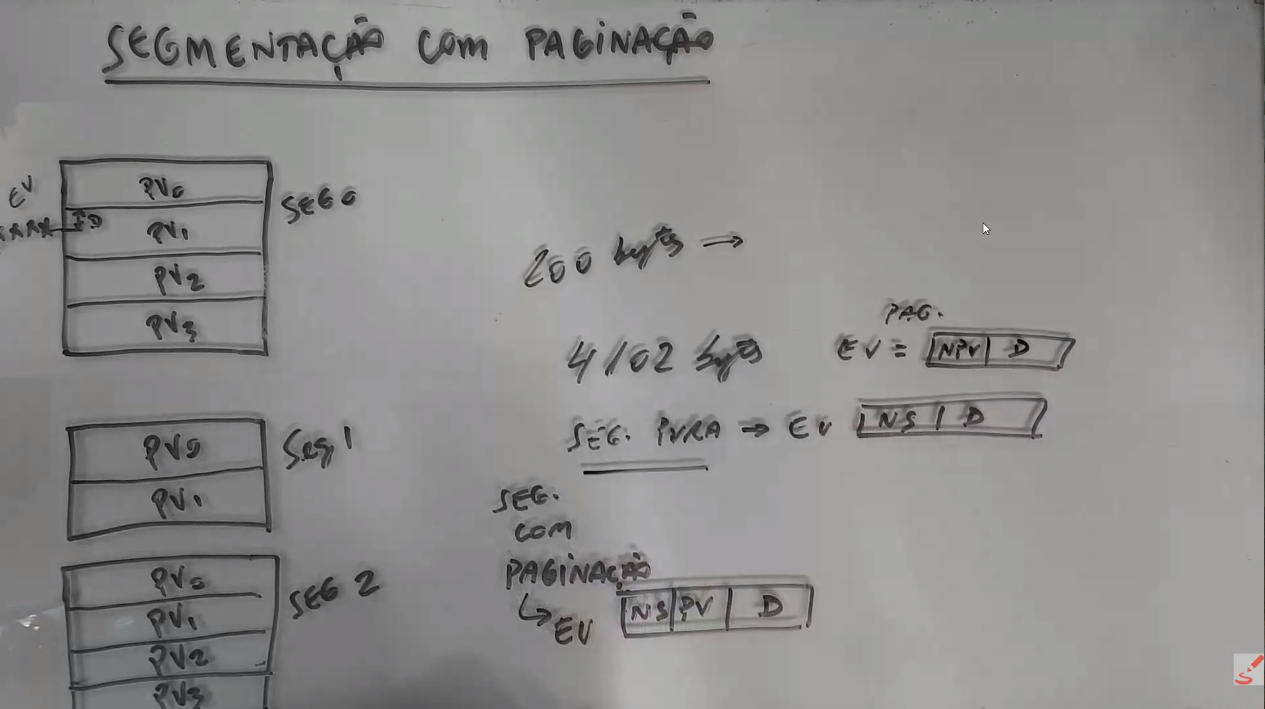 SEGMENTAÇÃO COM PAGINAÇÃO
EV
PV0
SEG 0
D
PV1
PV2
PV3
PV0
Seg 1
PV1
PV0
SEG 2
PV1
PV2
PV3
200 bytes →
4102 bytes
PAG.
EV = NPV D
SEG. PURA → EV NS D
SEG.
COM
PAGINAÇÃO
↳ EV NS PV D